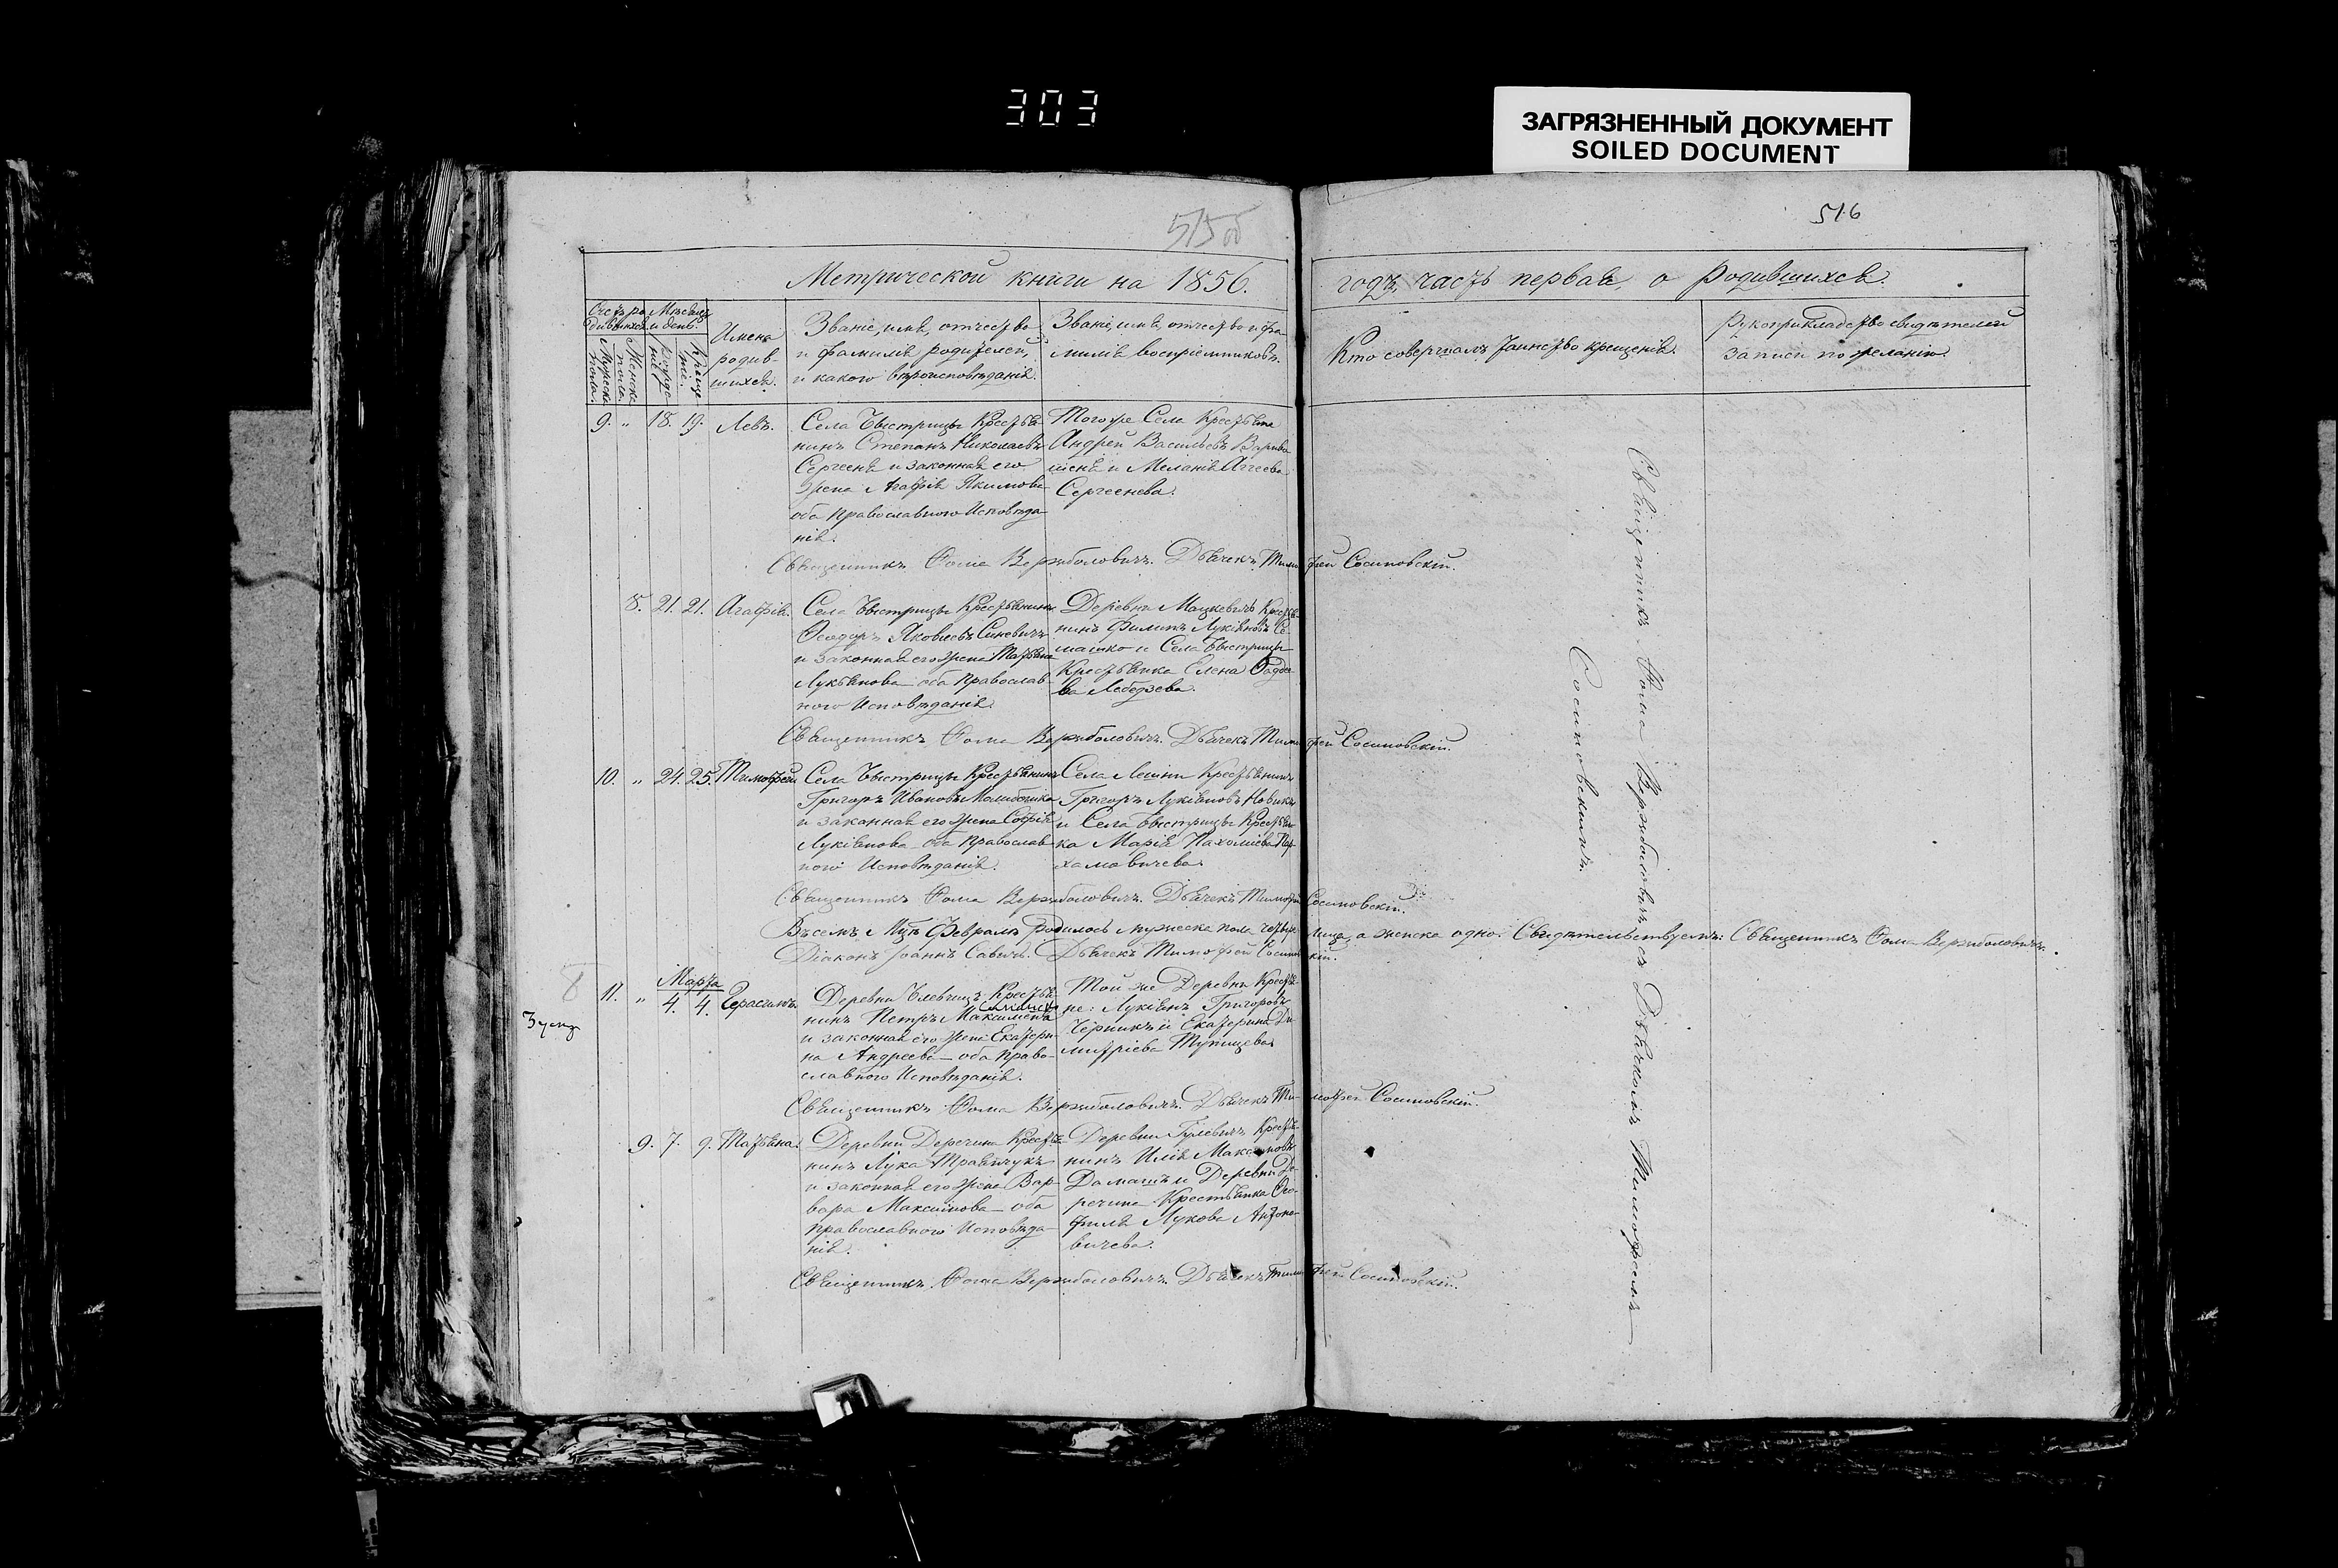 303
ЗАГРЯЗНЕННЫЙ ДОКУМЕНТ
SOILED DOCUMENT
515 об
516
Метрической книги на 1856.
годъ, часть первая, о родившихся.
Счетъ родившихся
Мѣсяцъ и день.
Мужеска пола.
Женска пола.
Рожденіе
Крещеніе.
Имена
родив-
шихся.
Званіе, имя, отчество
и фамилія родителей,
и какого вѣроисповѣданія.
Званіе, имя, отчество и фа-
милія воспріемниковъ.
Кто совершалъ таинство крещенія.
Рукоприкладство свидѣтелей
записи по желанію.
9. „ 18. 19. Левъ.
Села Быстрицы Крестья-
нинъ Степанъ Николаевъ
Сергееня и законная его
Жена Агафія Якимова
оба Православного Исповѣда-
нія.
Того же Села Крестьяне
Андрей Васильевъ
и Меланія Аггеева
Сергеенева.
Священникъ Фома Вержболовичъ. Дьячекъ Тимофей Сосиновскій.
8. 21. 21. Агафія.
Села Быстрицы Крестьянинъ
Феодоръ Яковлевъ Синевичъ
и законная его Жена Татьяна
Лукьянова оба Православ-
ного Исповѣданія.
Деревни Мацкевичъ Крестья-
нинъ Филипъ Лукіяновъ Се-
машко и Села Быстрицы
Крестьянка Елена Фадее-
ва Лебедзева.
Священникъ Фома Вержболовичъ. Дьячекъ Тимофей Сосиновскій.
10. „ 24. 25. Тимофей
Села Быстрицы Крестьянинъ
Григоръ Ивановъ
и законная его Жена Софія
Лукіянова оба Православ-
ного Исповѣданія.
Села Лешни Крестьянинъ
Григоръ Лукіяновъ Новикъ
и Села Быстрицы Крестьян-
ка Марія Пахоміева Пар-
хамовичева.
Священникъ Фома Вержболовичъ. Дьячекъ Тимофей Сосиновскій.
Въ семъ Мцѣ Февралѣ родилось мужеска пола четыре лица, а женска одно. Свидѣтельствуемъ: Священникъ Фома Вержболовичъ.
Діаконъ Іоаннъ Савичъ. Дьячекъ Тимофей Сосиновскій.
8
Марта
11. „ 4. 4. Герасимъ
Деревни Крестья-
нинъ Петръ
и законная его Жена Екатери-
на Андреева оба Право-
славного Исповѣданія.
Той же Деревни Крестья-
не: Лукіянъ Григоровъ
Черникъ и Екатерина Ди-
митріева Тупицева
Священникъ Фома Вержболовичъ. Дьячекъ Тимофей Сосиновскій.
9. 7. 9. Татьяна.
Деревни Деречина Крестья-
нинъ Лука Травничукъ
и законная его Жена Вар-
вара Максимова оба
Православного Исповѣда-
нія.
Деревни Гулевичъ Крестья-
нинъ Илія Максимовъ
Дамашъ и Деревни Де-
речина Крестьянка Фео-
филя Лукова Антоно-
вичева.
Священникъ Фома Вержболовичъ. Дьячекъ Тимофей Сосиновскій.
Священникъ Фома Вержболовичъ съ Дьячкомъ Тимофеемъ
Сосиновскимъ.